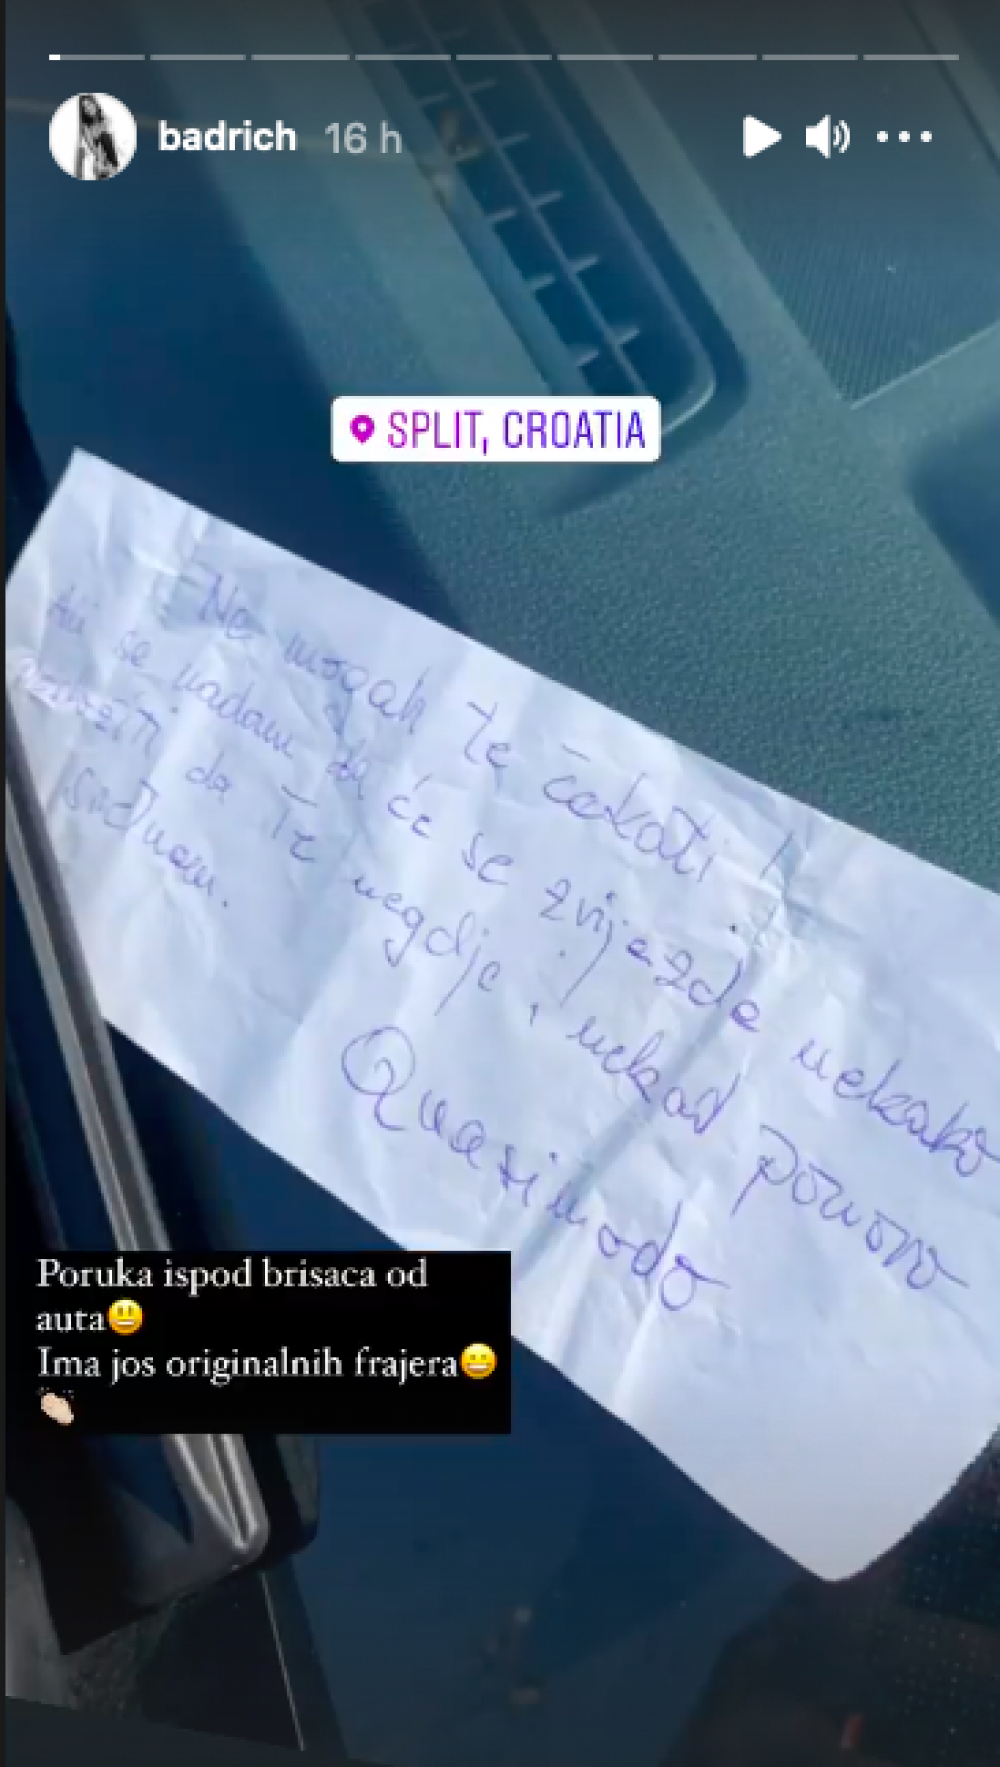 badrich 16 h
SPLIT, CROATIA
Ne mogah te čekati!
Ali se nadam da će se zvijezde nekako
da Te negdje, nekad ponovo
sretnem.
Quasimodo
Poruka ispod brisaca od
auta😃
Ima jos originalnih frajera😀
👏🏻